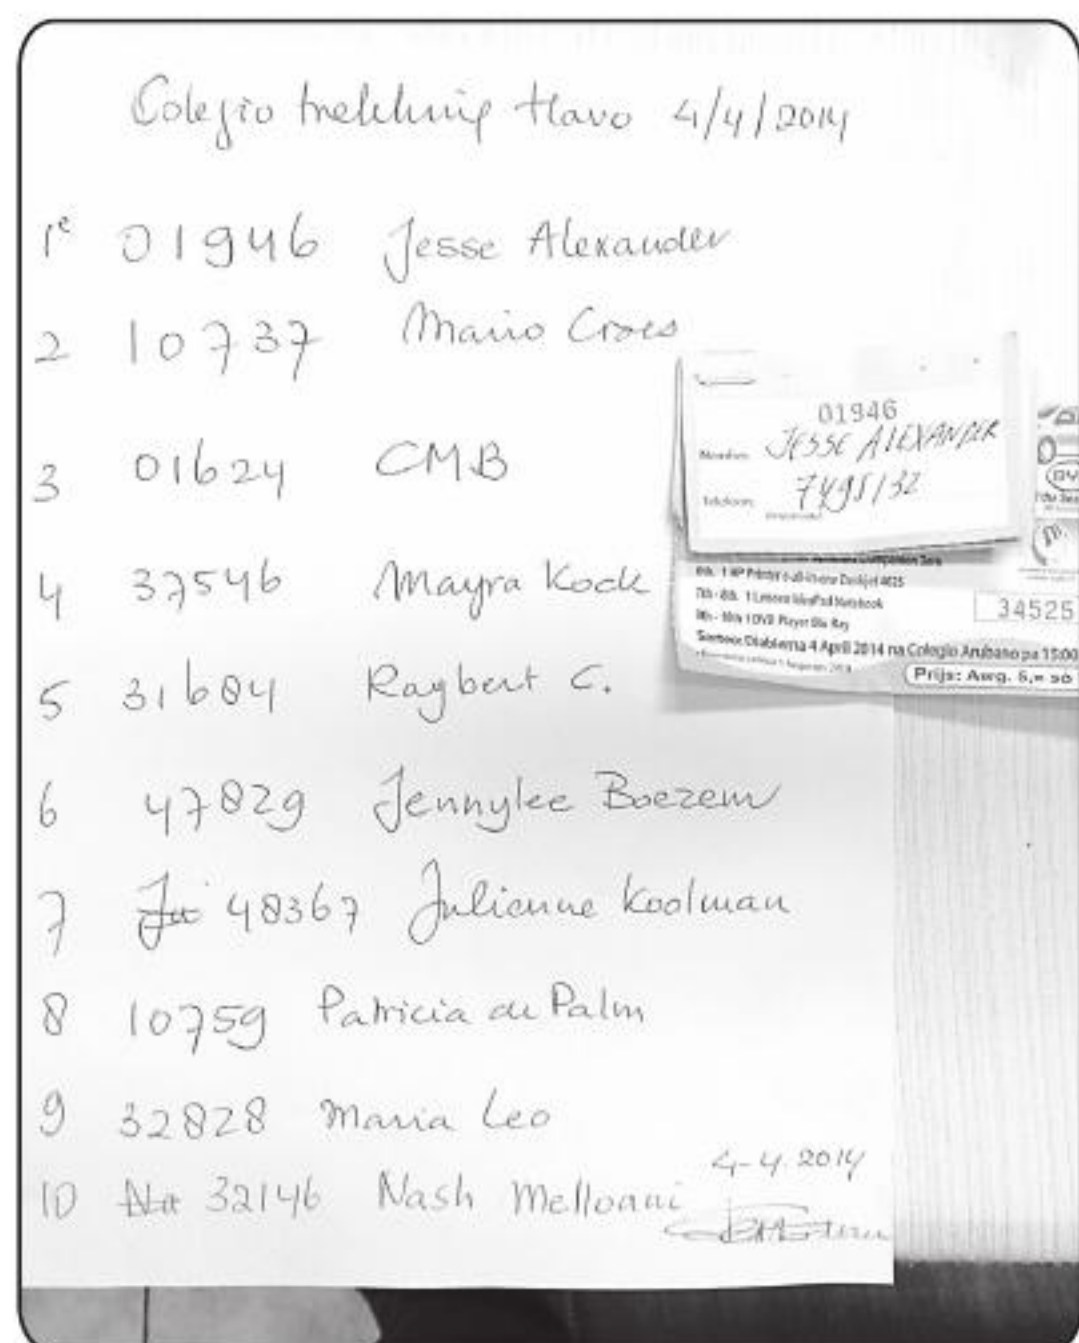 Colegio trekking Havo 4/4/2014
1e 01946 Jesse Alexander
2 10737 Mario Croes
3 01624 CMB
4 37546 Mayra Kock
5 31684 Raybert C.
6 47829 Jennylee Boezem
7 48367 Julienne Koolman
8 10759 Patricia de Palm
9 32828 Maria Leo
10 32146 Nash Melloani
4-4-2014
01946
Nomber: JESSE ALEXANDER
Telefoon: 7495132
6th. 1 HP Printer e-all-in-one Deskjet 4625
7th - 8th. 1 Lenovo IdeaPad Notebook
9th - 10th 1 DVD Player Blu Ray
34525
Sorteo: Diabierna 4 April 2014 na Colegio Arubano pa 15:00
Prijs: Awg. 5,= so